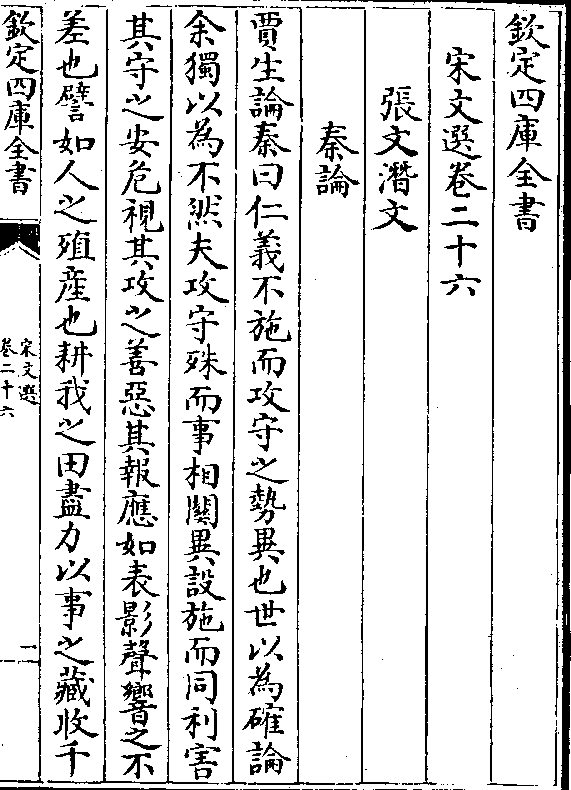 欽定四庫全書
宋文選卷二十六
張文潛文
秦論
賈生論秦曰仁義不施而攻守之勢異也世以為確論
余獨以為不然夫攻守殊而事相關異設施而同利害
其守之安危視其攻之善惡其報應如表影聲響之不
差也譬如人之殖産也耕我之田盡力以事之藏收千
欽定四庫全書
宋文選
卷二十六
一